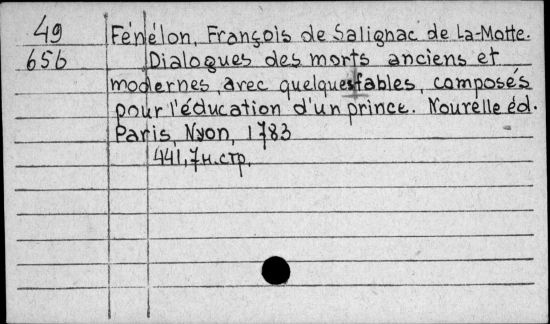 49 Fénélon, François de Salignac de La-Motte.
656 Dialogues des morts anciens et
modernes, avec quelques fables, composés
pour l'éducation d'un prince. Nouvelle éd.
Paris, Nyon, 1783
441, 7 н. стр.